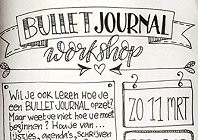 BULLET JOURNAL
workshop
Wil je ook leren hoe je
een BULLET JOURNAL opzet?
Maar weet je niet hoe je moet
beginnen? Hou je van...
lijstjes, agenda's, schrijven
ZO 11 MRT